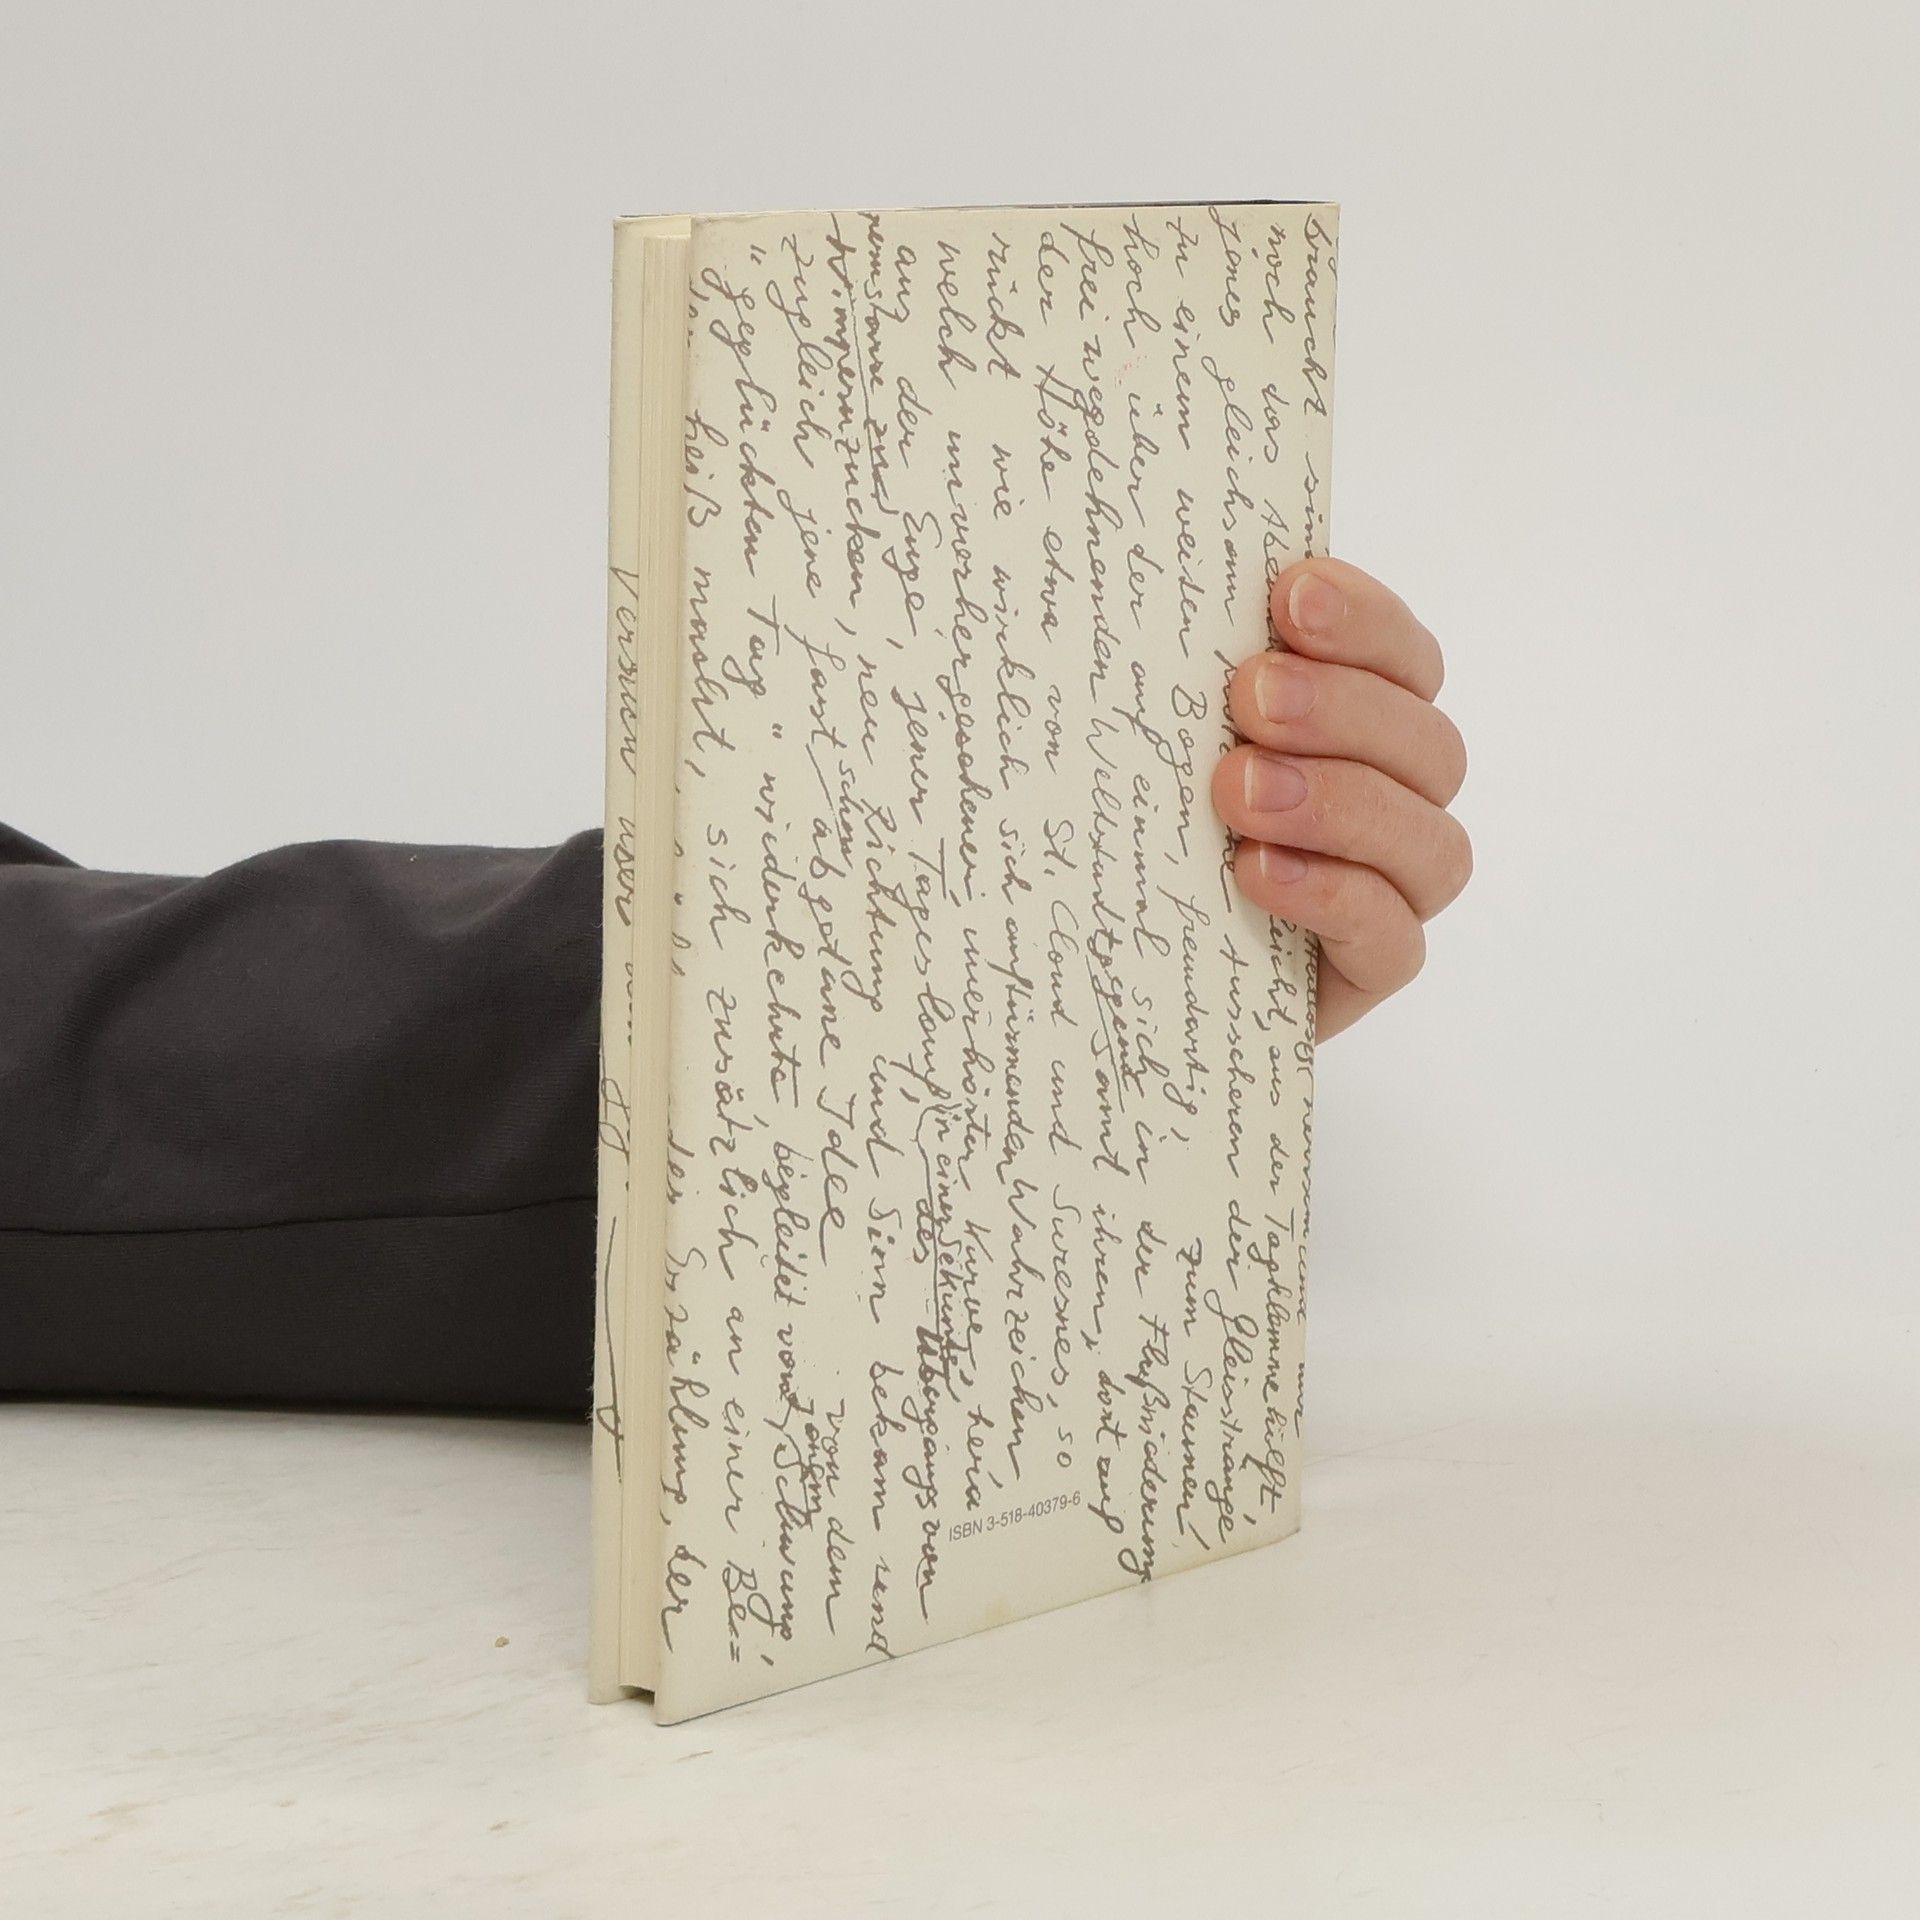 braucht.
noch das leicht, aus der Tagklemme hilft,
jenes gleichsam Ausscheren der Gleisstränge
zu einem weiten Bogen, fremdartig, zum Staunen!
hoch über der auf einmal sich in der Flußniederung
frei wegdehnenden Weltstadt samt ihren, dort auf
der Höhe etwa von St. Cloud und Suresnes, so
rückt wie wirklich sich auftürmenden Wahrzeichen
welch unvorhergesehener, unerhörter Kurve, hera
aus der Enge, jener Tageslauf, in einer Sekunde des Übergangs von
zum
Wimpernzucken, neu Richtung und Sinn bekam und
zugleich jene fast schon abgetane Idee von dem
"geglückten Tag" wiederkehrte, begleitet von jenem Schwung,
heiß macht, sich zusätzlich an einer Be=
der Erzählung, der
Versuch über
ISBN 3-518-40379-6